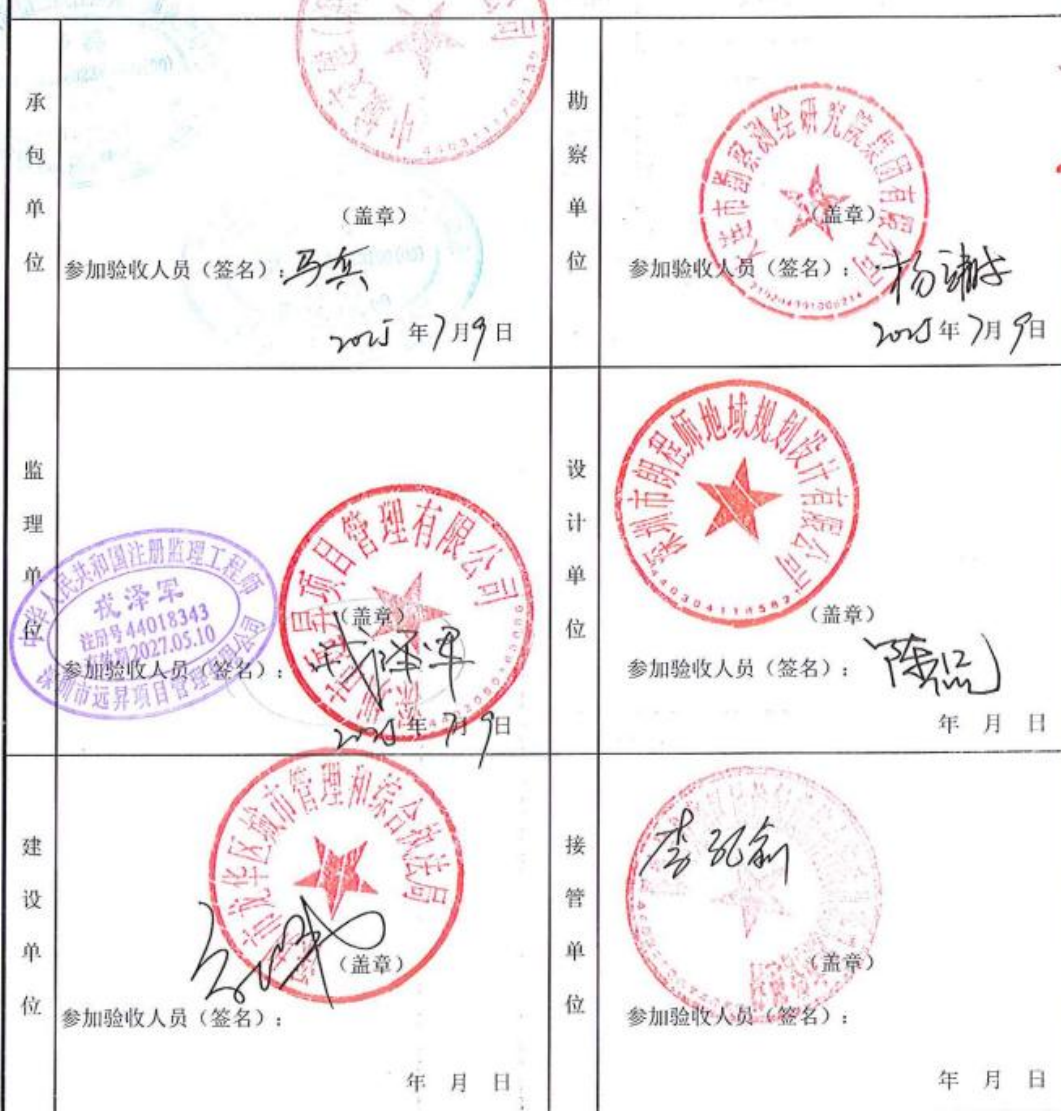 承包单位
（盖章）
参加验收人员（签名）：马兵
2025年7月9日
勘察单位
大连市勘察测绘研究院集团有限公司
（盖章）
参加验收人员（签名）：杨
2025年7月9日
监理单位
中华人民共和国注册监理工程师
戎泽军
注册号44018343
有效期2027.05.10
深圳市远昇项目管理有限公司
深圳市远昇项目管理有限公司
（盖章）
参加验收人员（签名）：戎泽军
2025年7月9日
设计单位
深圳市朗程师地域规划设计有限公司
（盖章）
参加验收人员（签名）：陈
年 月 日
建设单位
深圳市龙华区城市管理和综合执法局
（盖章）
参加验收人员（签名）：
年 月 日
接管单位
李
（盖章）
参加验收人员（签名）：
年 月 日